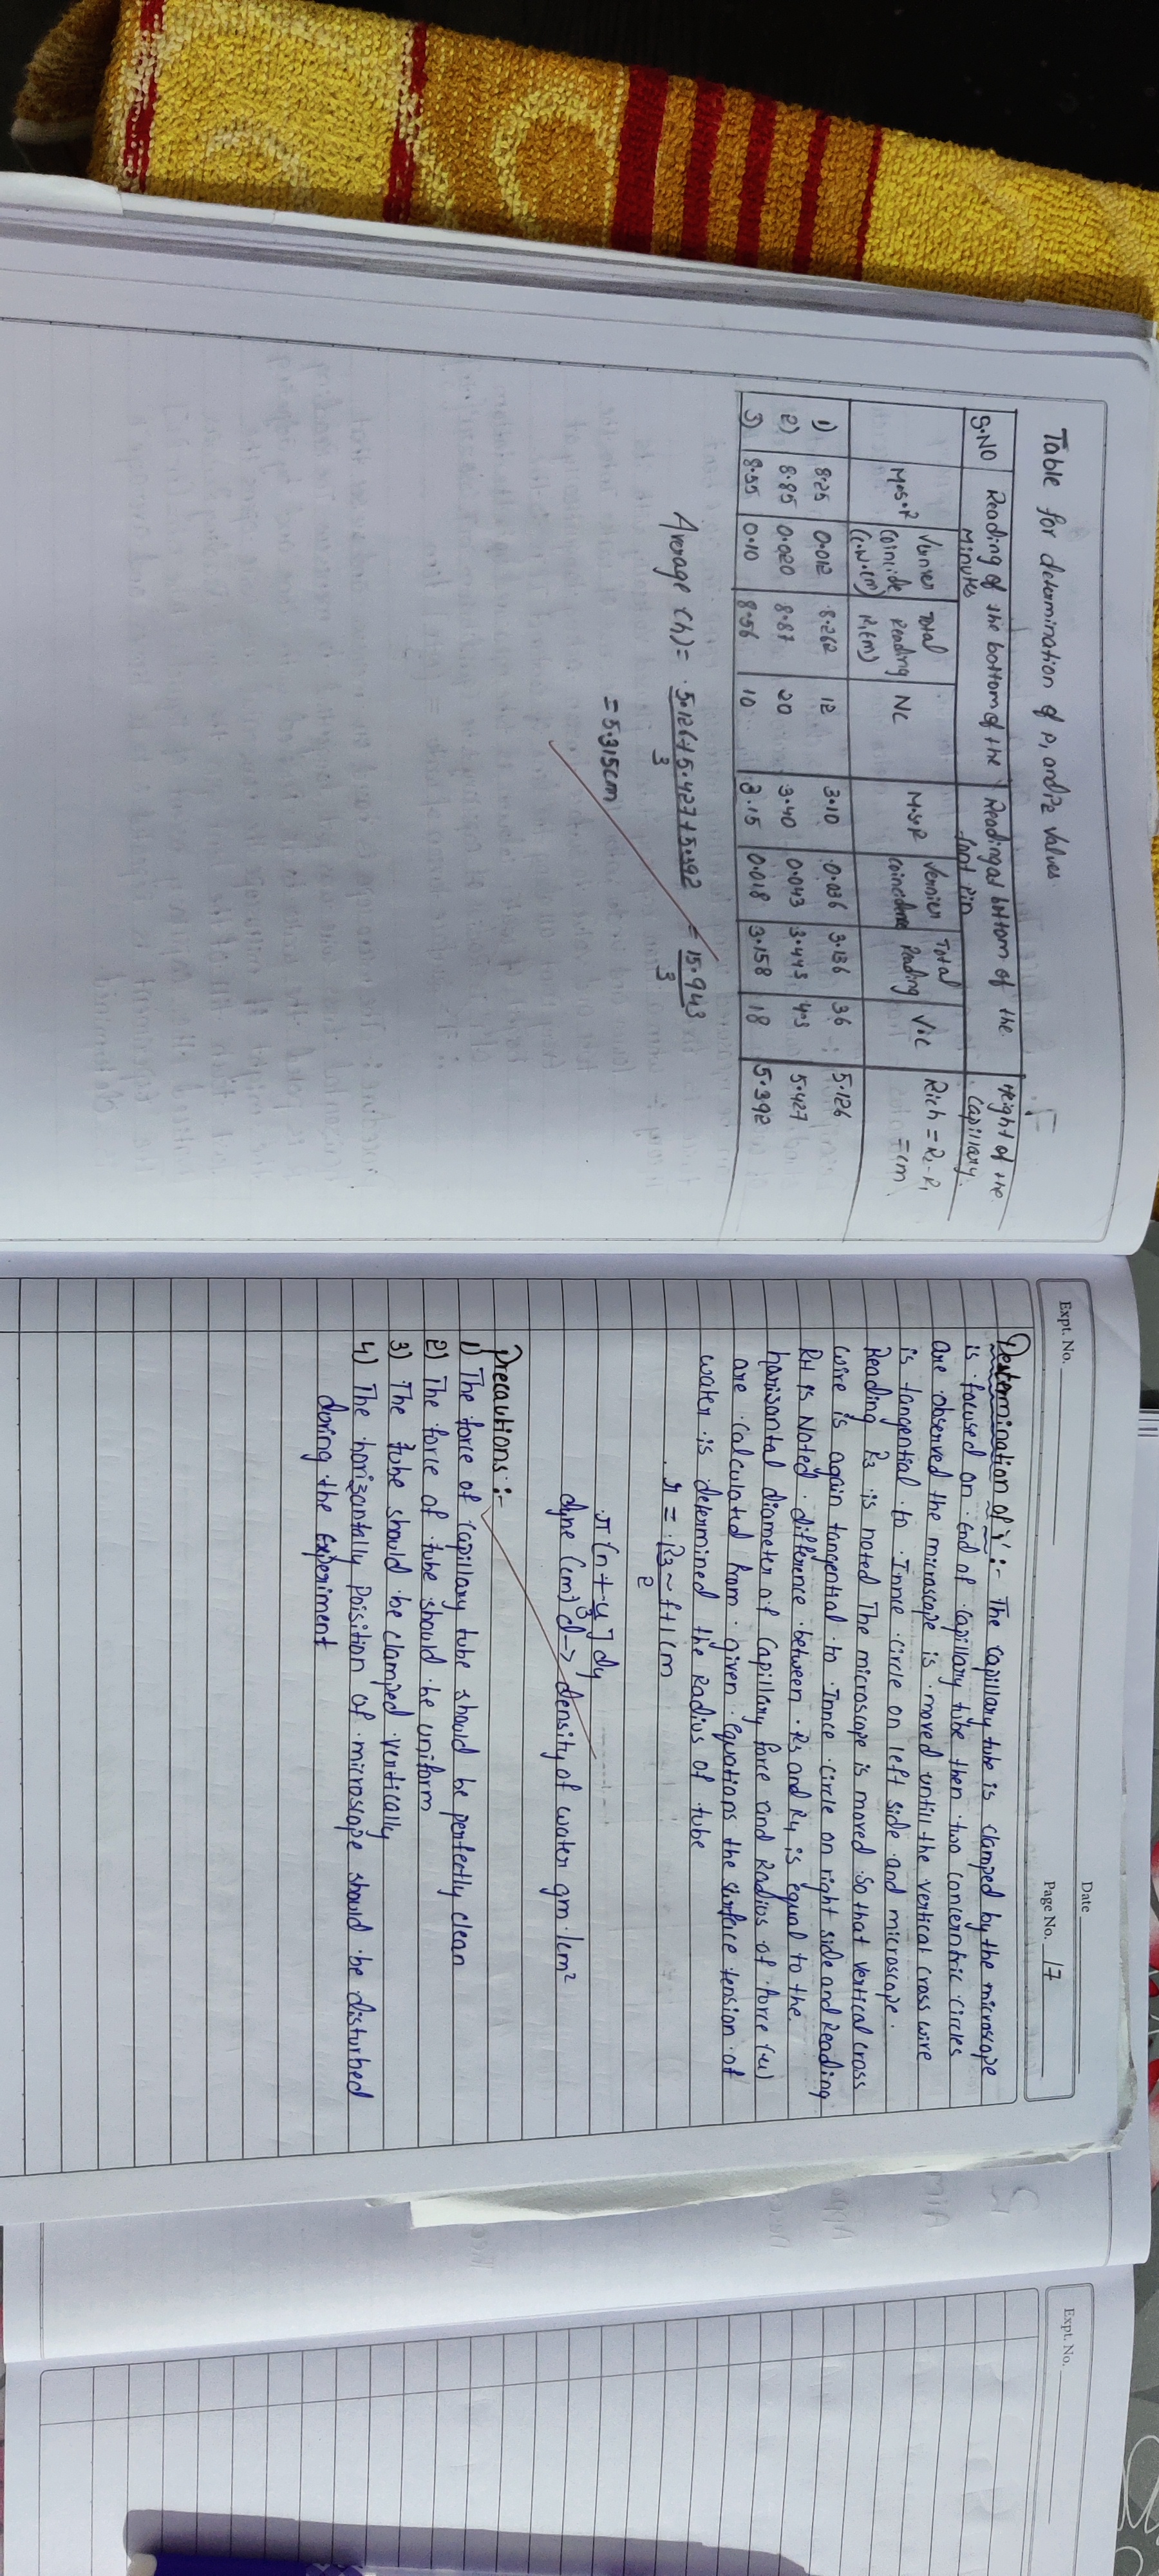 Table for determination of P1 and P2 values
S.NO Reading of the bottom of the Minutes Reading at bottom of the Height of the Capillary.
M.S.R Vernier Coincide Total Reading R1(m) NC M.S.R Vernier coincidence Total Reading V.C Rich = R2-R1 =cm
1) 8.25 0.012 8.262 12 3.10 0.036 3.136 36 5.126
2) 8.85 0.020 8.87 20 3.40 0.043 3.443 43 5.427
3) 8.55 0.10 8.56 10 3.15 0.018 3.158 18 5.392
Average (h) = 5.126+5.427+5.392 / 3 = 15.943 / 3
= 5.315cm
Date
Expt. No. Page No. 17
Determination of 'r' :- The capillary tube is clamped by the microscope
is focused on end of capillary tube then two concentric circles
are observed the microscope is moved untill the vertical cross wire
is tangential to Innce circle on left side and microscope.
Reading R3 is noted The microscope is moved so that vertical cross
wire is again tangential to Innce circle on right side and Reading
R4 is Noted difference between R3 and R4 is equal to the
horisontal diameter of capillary force and Radius of force (u)
are calculated from given equations the surface tension of
water is determined the Radius of tube
dyne (cm)3 d → density of water gm/cm2
Precautions :-
1) The force of capillary tube should be perfectly clean
2) The force of tube should be uniform
3) The tube should be clamped vertically
4) The horizontally Poisition of microscope should be disturbed
during the experiment
Expt. No.